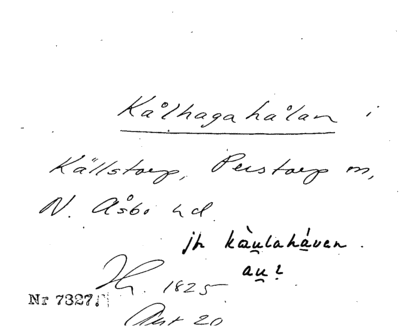 Kålhagahålan i
Källstorp, Perstorp m,
N. Åsbo hd.
jh kàulaháven.
au?
Hr. 1825
Nr 7327
Akt 20